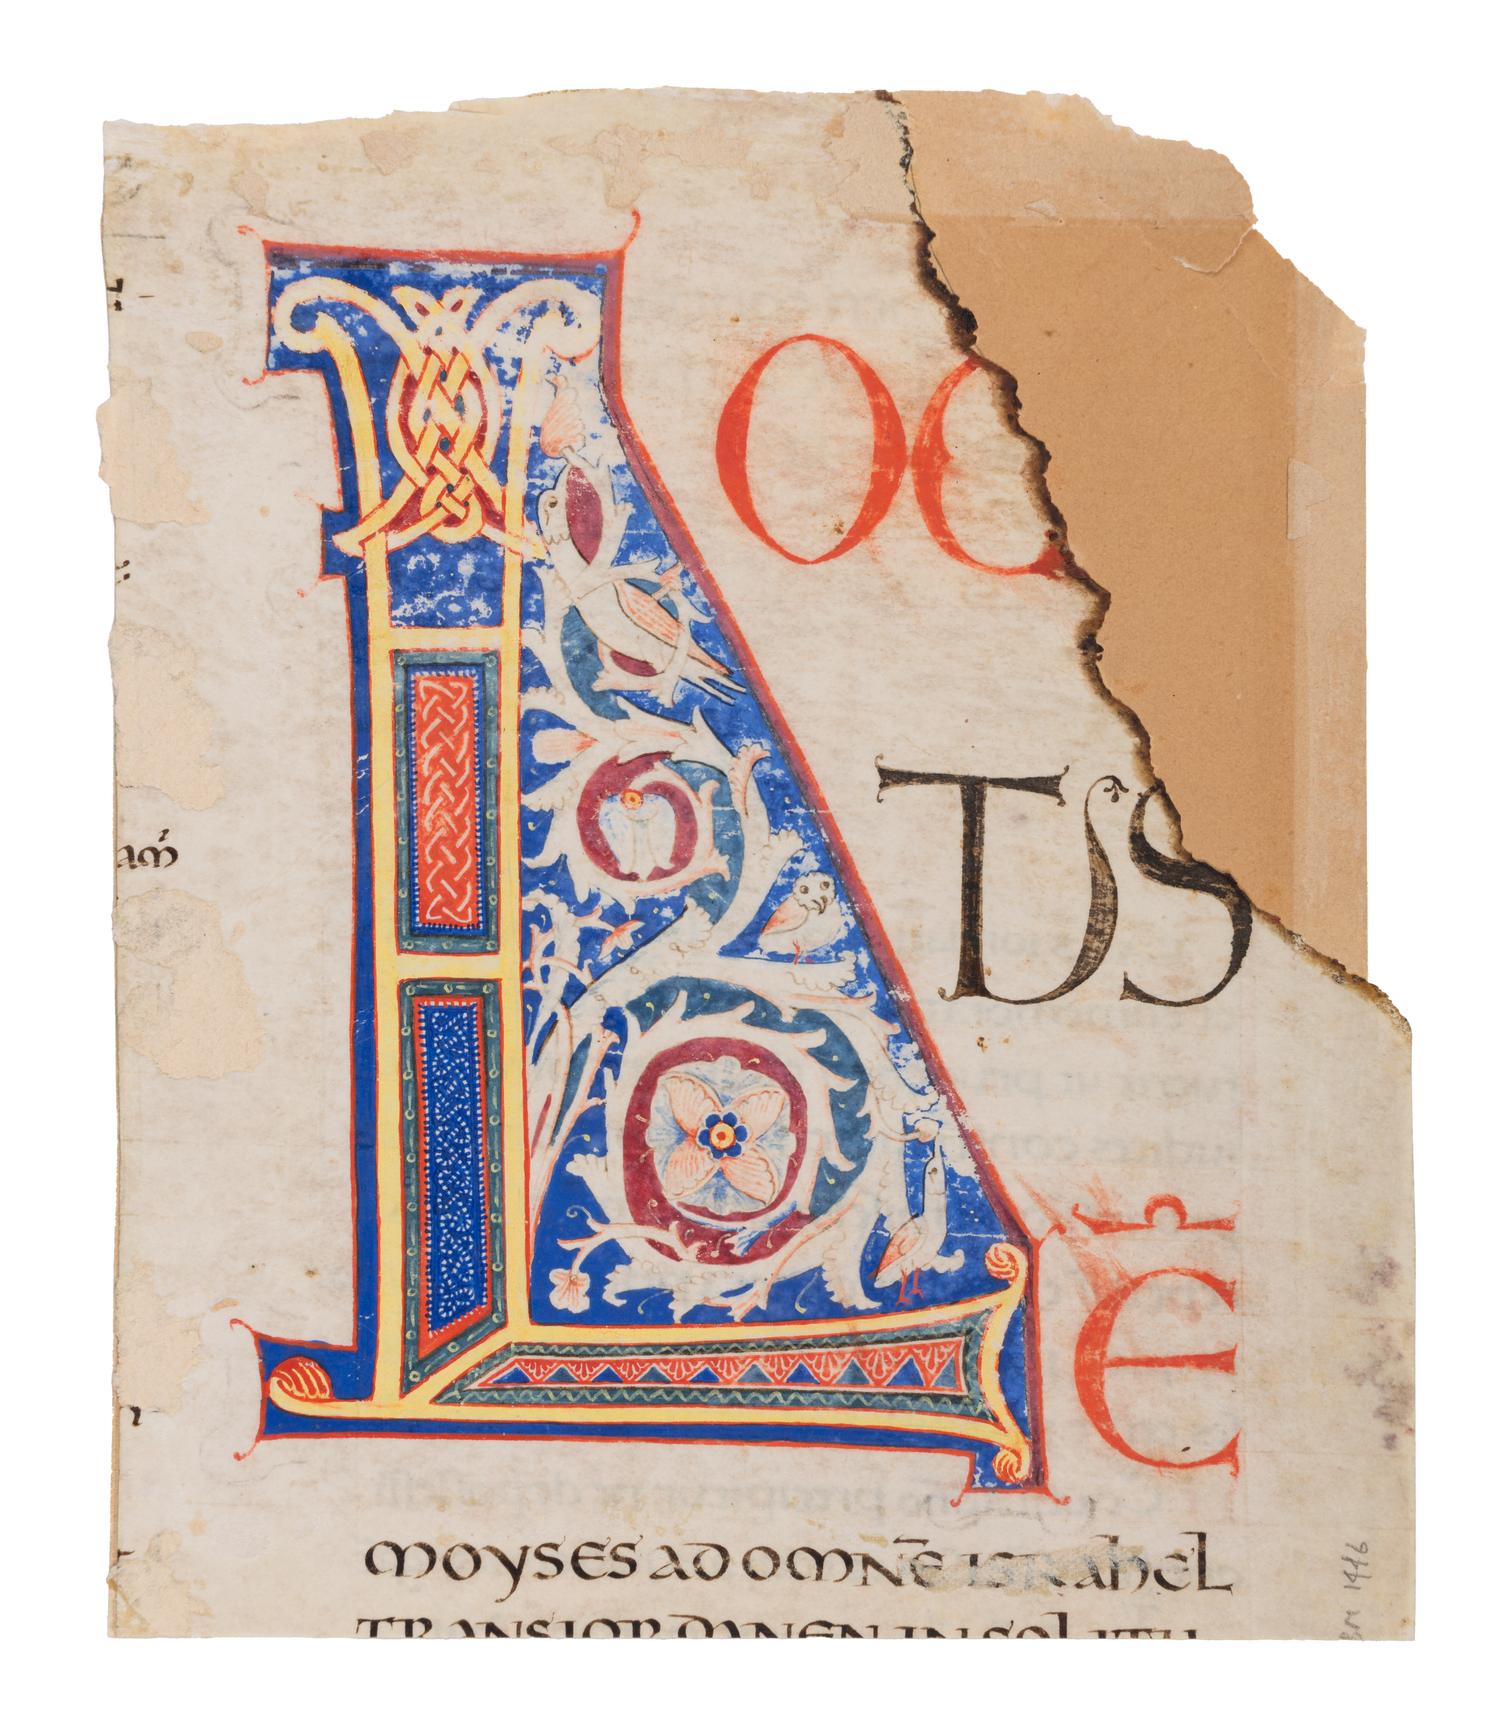 LOC
TUS
Ē
MOYSES AD OMNĒ ISRAHEL
TRANS IORDANEN IN SOLITU
am̄
Bm 1446